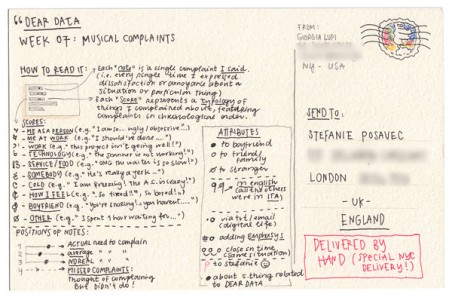 "DEAR DATA
WEEK 07: MUSICAL COMPLAINTS
HOW TO READ IT:
Each "NOTE" is a single complaint I said
(i.e. every single time I expressed
dissatisfaction or annoyance about a
situation or particular thing)
Each "SCORE" represents a typology of
things I complained about, featuring
complaints in chronological order.
SCORES:
ME AS A PERSON (e.g. "I am so... ugly / obsessive...")
ME AT WORK (e.g. "I should've done...")
WORK (e.g. "this project isn't going well!")
TECHNOLOGY (e.g. "the scanner is not working!")
SERVICE/FOOD (e.g. is so slow!")
SOMEBODY (e.g. "He's really a jerk...")
COLD (e.g. "I am freezing! The A.C. is crazy!")
HOW I FEEL (e.g. "So tired!!", so bored!..)
BOYFRIEND (e.g. "You're snoring!, you haven't....")
OTHER (e.g. "I spent 1 hour waiting for...")
POSITIONS OF NOTES:
1 ACTUAL need to complain
2 average
3 NO REAL
4 MISSED COMPLAINTS:
Thought of complaining
But didn't do!
ATTRIBUTES
to boyfriend
to friend/
family
to stranger
in english
(all the others
were in ITA)
via txt/email
(digital life)
adding EMPHASIS
close in time
(same situation)
to stefanie
about s.thing related
to DEAR DATA
FROM:
GIORGIA LUPI
NY - USA
SEND TO:
STEFANIE POSAVEC
LONDON
- UK -
ENGLAND
DELIVERED BY
HAND (SPECIAL NYC
DELIVERY!)